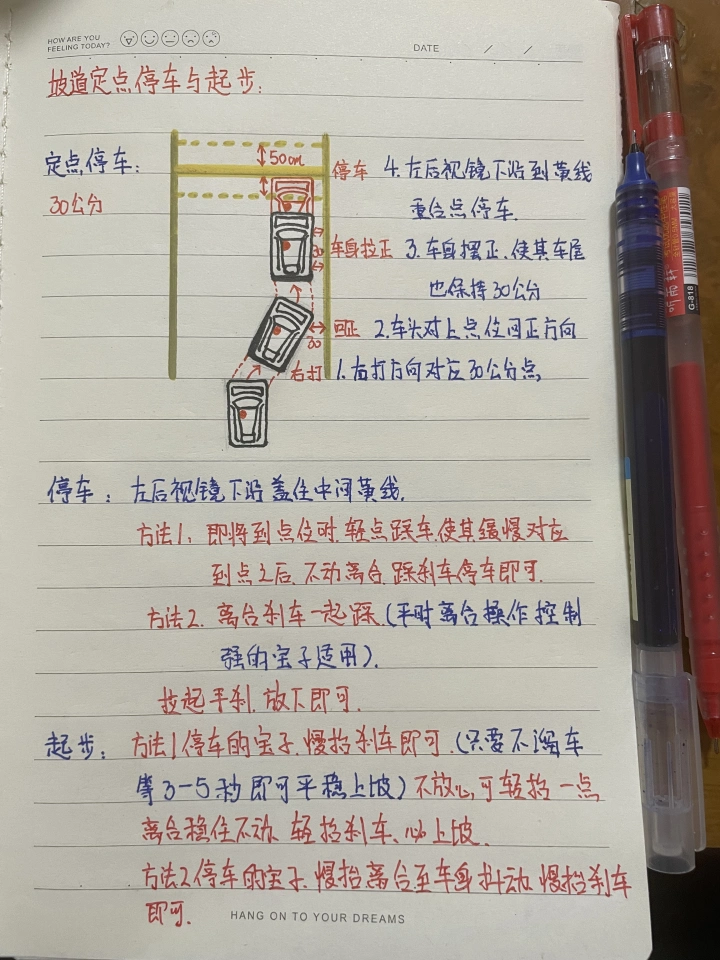 HOW ARE YOU
FEELING TODAY?
DATE / /
坡道定点停车与起步:
50cm
定点停车:
停车 4.左后视镜下沿到黄线
30公分
重合点停车.
30
车身拉正 3.车身摆正.使其车尾
也保持30公分
30
回正 2.车头对上点位回正方向
右打 1.右打方向对应30公分点,
停车: 左后视镜下沿盖住中间黄线.
方法1. 即将到点位时.轻点踩车.使其缓慢对应
到点之后.不动离合.踩刹车停车即可.
方法2. 离合刹车一起踩.(平时离合操作控制
强的宝子适用).
拉起手刹.放下即可.
起步: 方法1停车的宝子.慢抬刹车即可.(只要不溜车
等3-5秒即可平稳上坡)不放心,可轻抬一点
离合稳住不动.轻抬刹车、必上坡.
方法2停车的宝子.慢抬离合至车身抖动.慢抬刹车
即可.
HANG ON TO YOUR DREAMS
G-818